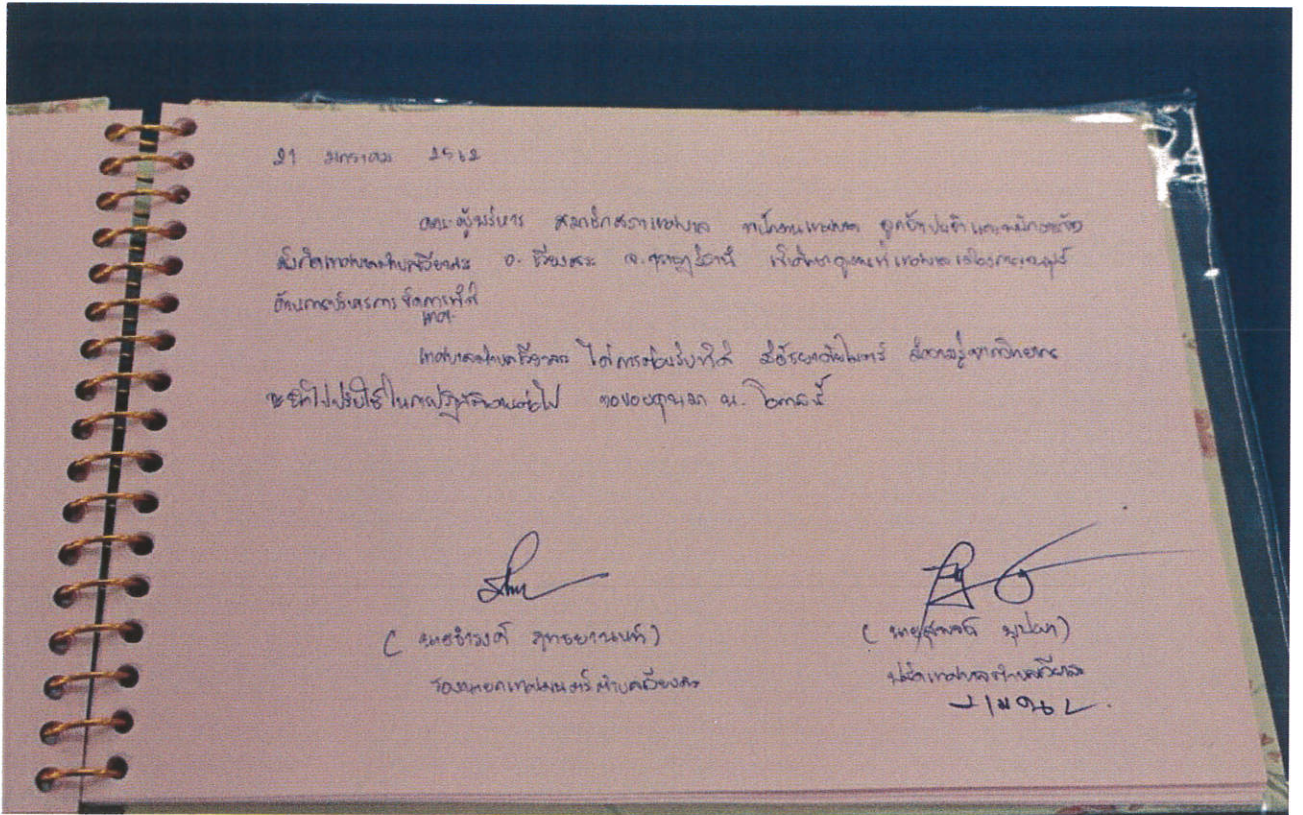 21 มกราคม 2562
คณะผู้บริหาร สมาชิกสภาเทศบาล พนักงานเทศบาล ลูกจ้างประจำ และพนักงานจ้าง
สังกัดเทศบาลตำบลเวียงสระ อ. เวียงสระ จ. สุราษฎร์ธานี เข้าศึกษาดูงานที่เทศบาลเมือง
ด้านการบริหารการจัดการ
เทศบาลตำบลเวียงสระ ได้การต้อนรับที่ดี มีอัธยาศัยไมตรี
จะนำไปปรับใช้ในการปฏิบัติงานต่อไป ขอขอบคุณมา ณ. โอกาสนี้
( นายธำรงค์ )
รองนายกเทศมนตรีตำบลเวียงสระ
( นายสุพจน์ )
ปลัดเทศบาลตำบลเวียงสระ